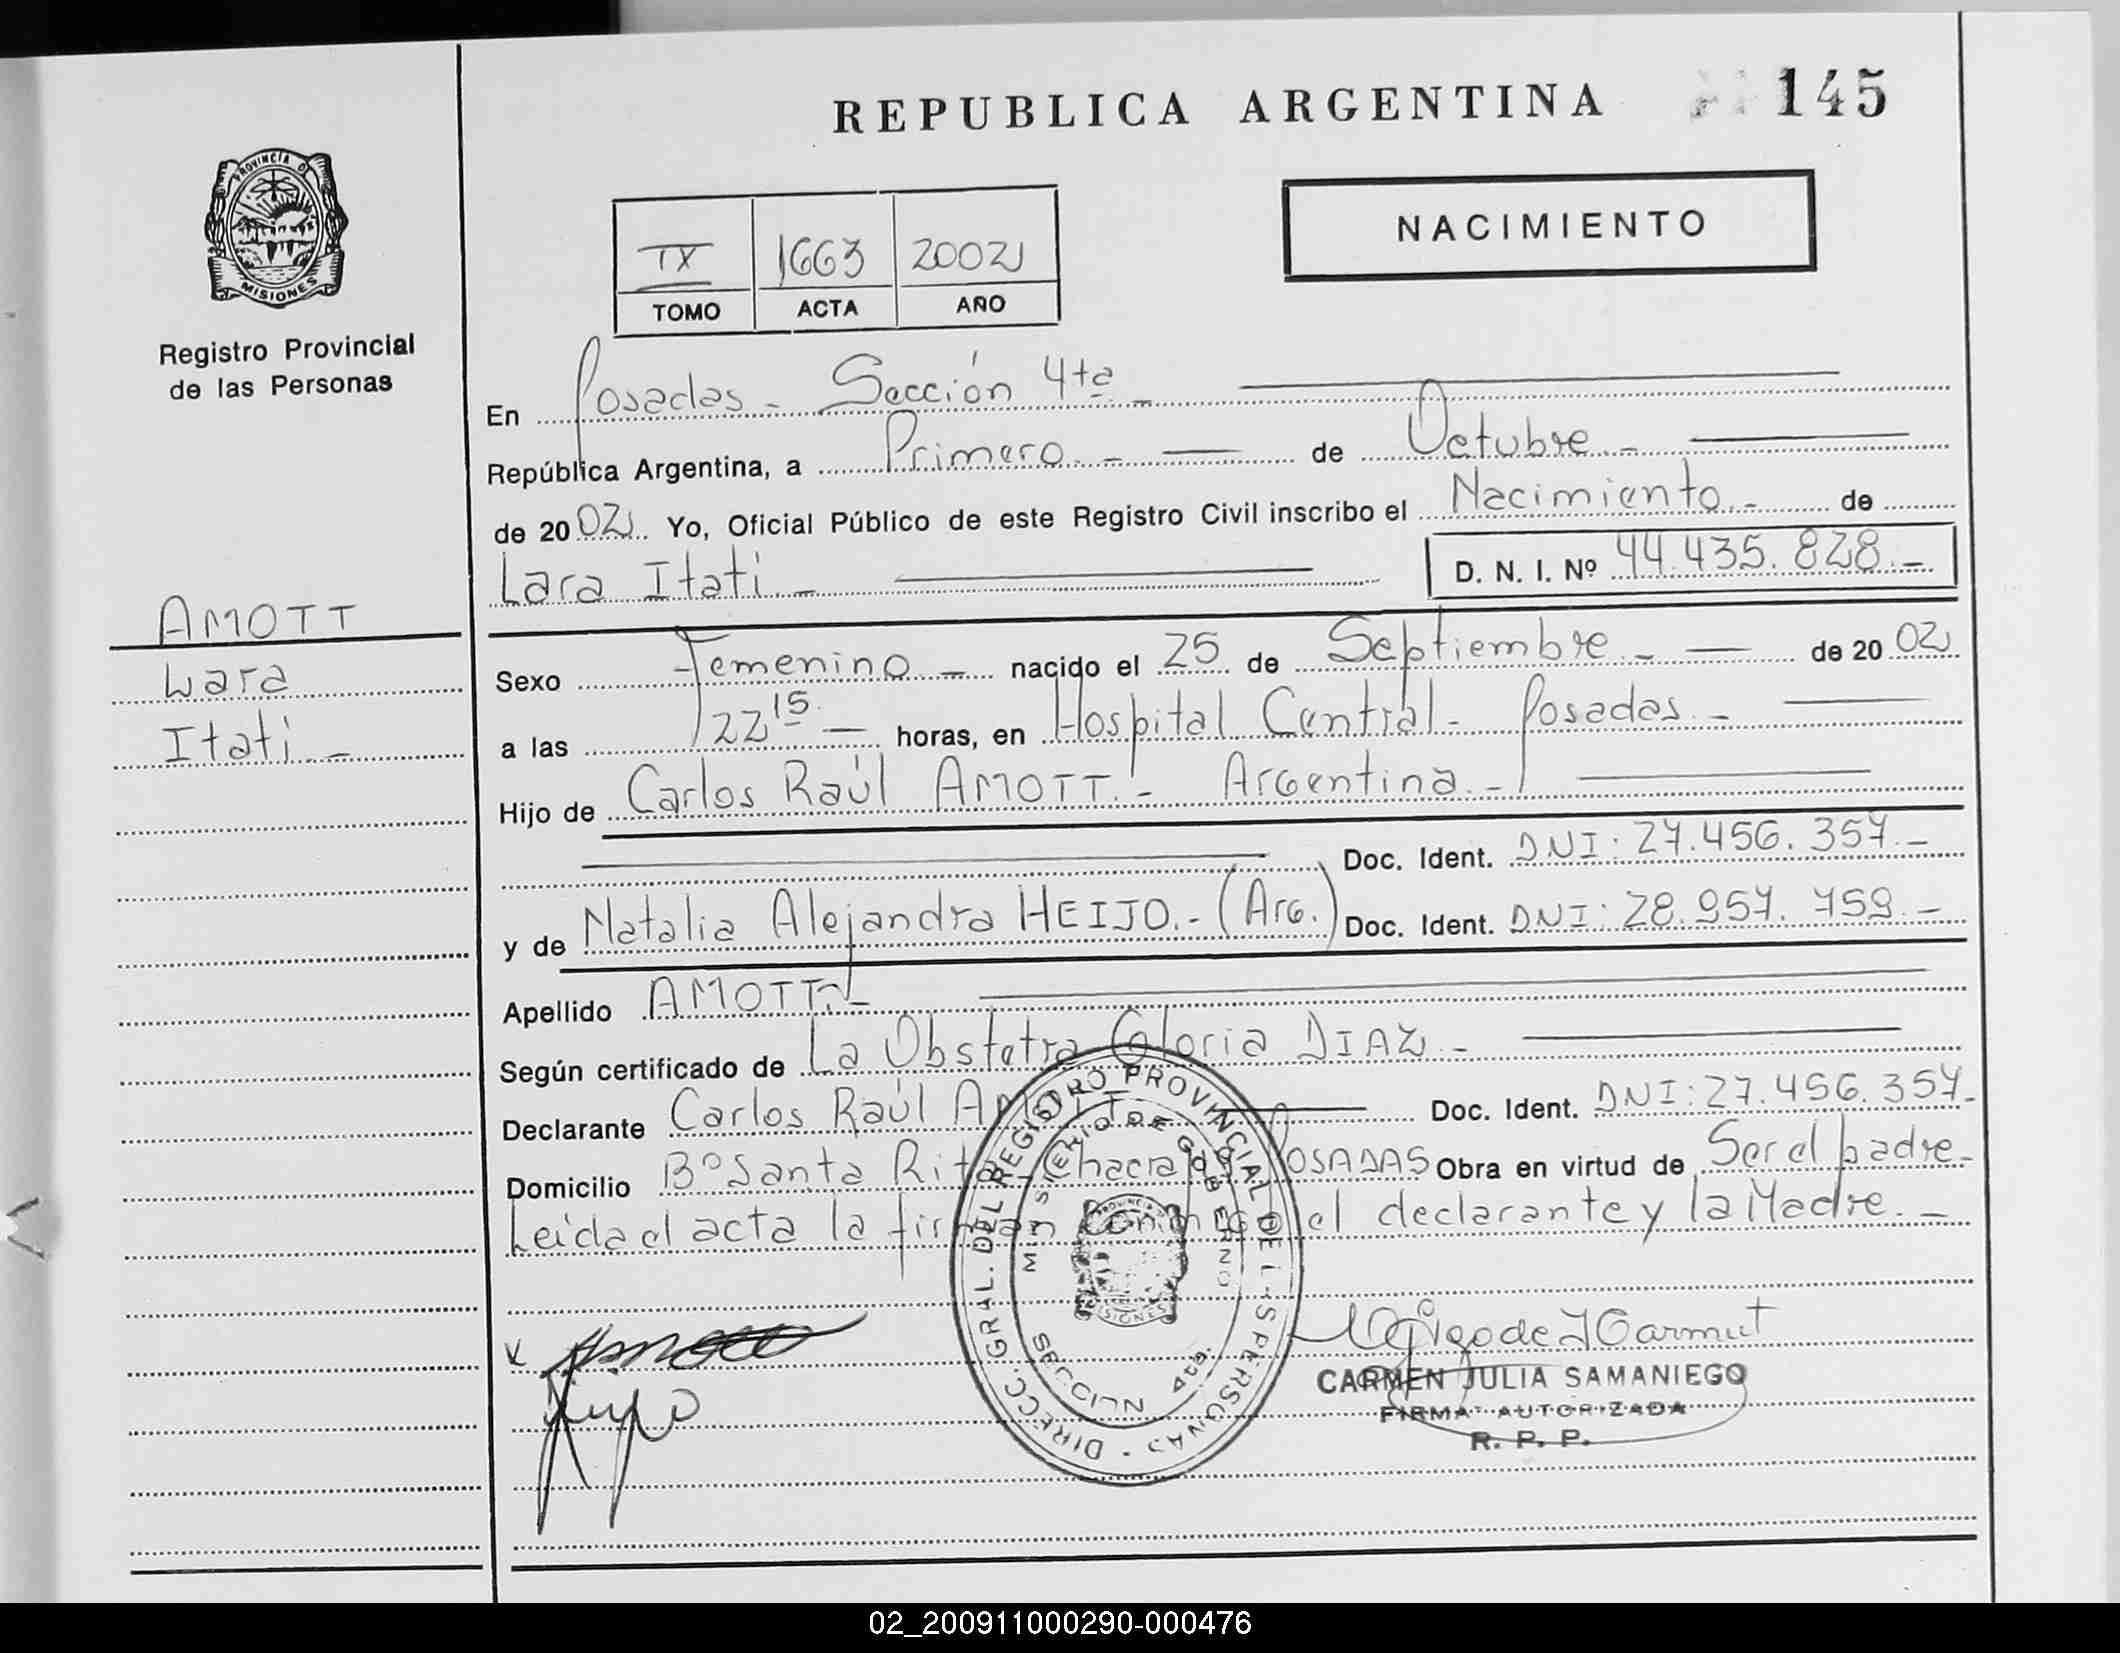 REPUBLICA ARGENTINA 145
PROVINCIA DE
MISIONES
Registro Provincial
de las Personas
NACIMIENTO
IX 1663 2002
TOMO ACTA AÑO
En Posadas - Sección 4ta -
República Argentina, a Primero. - de Octubre. -
de 20 02. Yo, Oficial Público de este Registro Civil inscribo el Nacimiento. - de
Lara Itati. - D. N. I. Nº 44.435.828. -
AMOTT
Lara
Itati. -
Sexo Femenino - nacido el 25 de Septiembre - de 20 02
a las 22 15 - horas, en Hospital Central - Posadas. -
Hijo de Carlos Raúl AMOTT. - Argentina. -
Doc. Ident. DNI: 27.456.357. -
y de Natalia Alejandra HEIJO. - (Arg.) Doc. Ident. DNI: 28.957.759. -
Apellido AMOTT. -
Según certificado de La Obstetra Gloria DIAZ -
Declarante Carlos Raúl AMOTT Doc. Ident. DNI: 27.456.357. -
Domicilio Bº Santa Rita Chacra POSADAS Obra en virtud de Ser el padre -
Leida el acta la firman conmigo el declarante y la Madre. -
DIRECC. GRAL. DEL REGISTRO PROVINCIAL DE L S PERSONAS
MINISTERIO DE GOBIERNO
SECCION 4ta.
CARMEN JULIA SAMANIEGO
FIRMA AUTORIZADA
R. P. P.
02_200911000290-000476